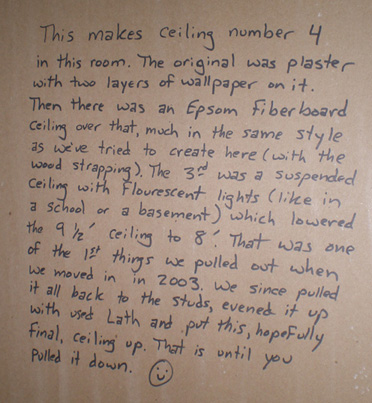 This makes ceiling number 4
in this room. The original was plaster
with two layers of wallpaper on it.
Then there was an Epsom Fiberboard
ceiling over that, much in the same style
as we've tried to create here (with the
wood strapping). The 3rd was a suspended
ceiling with Flourescent lights (like in
a school or a basement) which lowered
the 9 1/2' ceiling to 8'. That was one
of the 1st things we pulled out when
we moved in in 2003. We since pulled
it all back to the studs, evened it up
with used Lath and put this, hopefully
final, ceiling up. That is until you
pulled it down. ☺